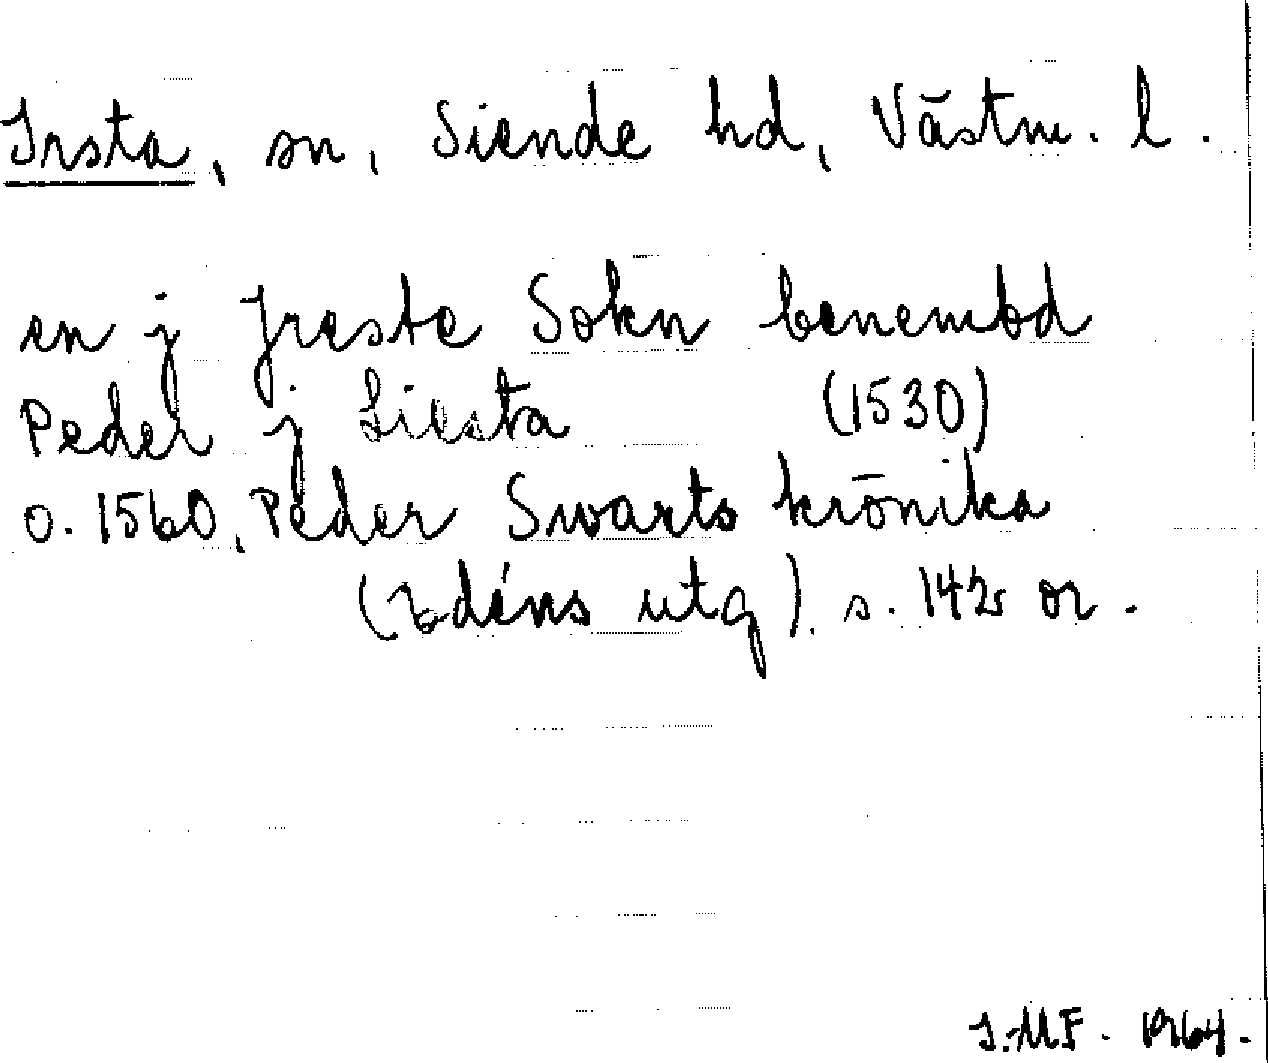 Irsta, sn, Siende hd, Västm. l.
en j Jreste Sokn benembd
Peder j Liesta (1530)
o. 1560, Peder Swarts krönika
(Edéns utg). s. 142 or.
J.MF. 1964.